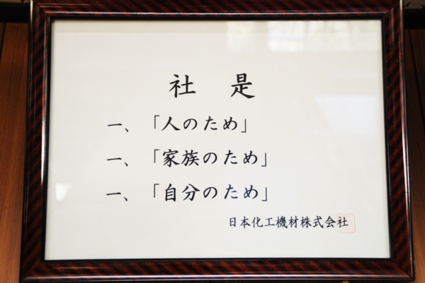 社 是
一、「人のため」
一、「家族のため」
一、「自分のため」
日本化工機材株式会社